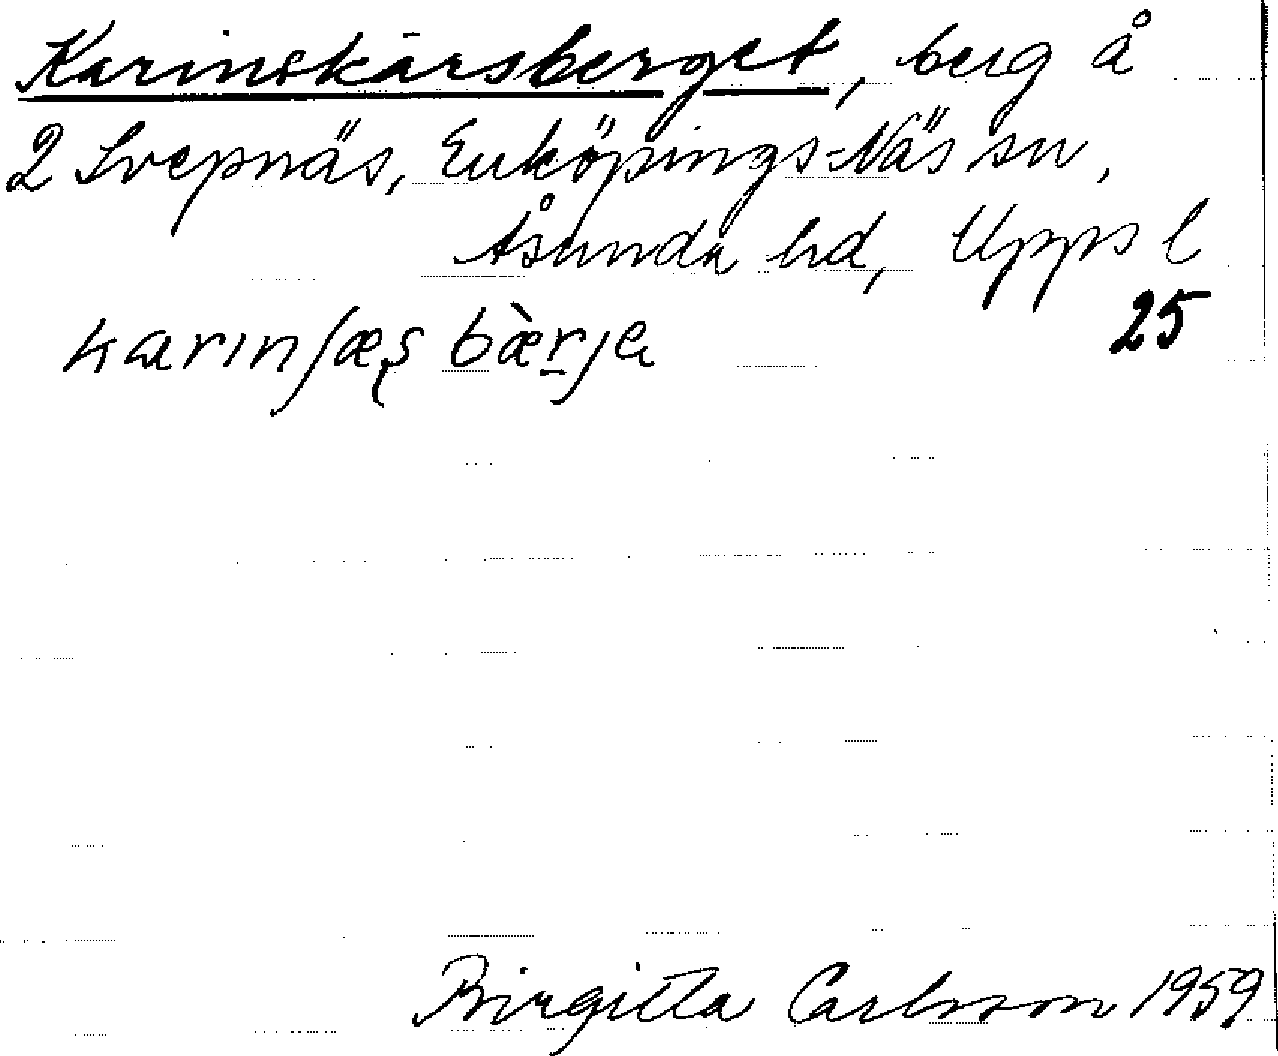 Karinskärsberget, berg å
2 Svepnäs, Enköpings-Näs sn,
Åsunda hd, Upps l
karinʃæʂ bæ̀rja
25
Birgitta Carlsson 1959